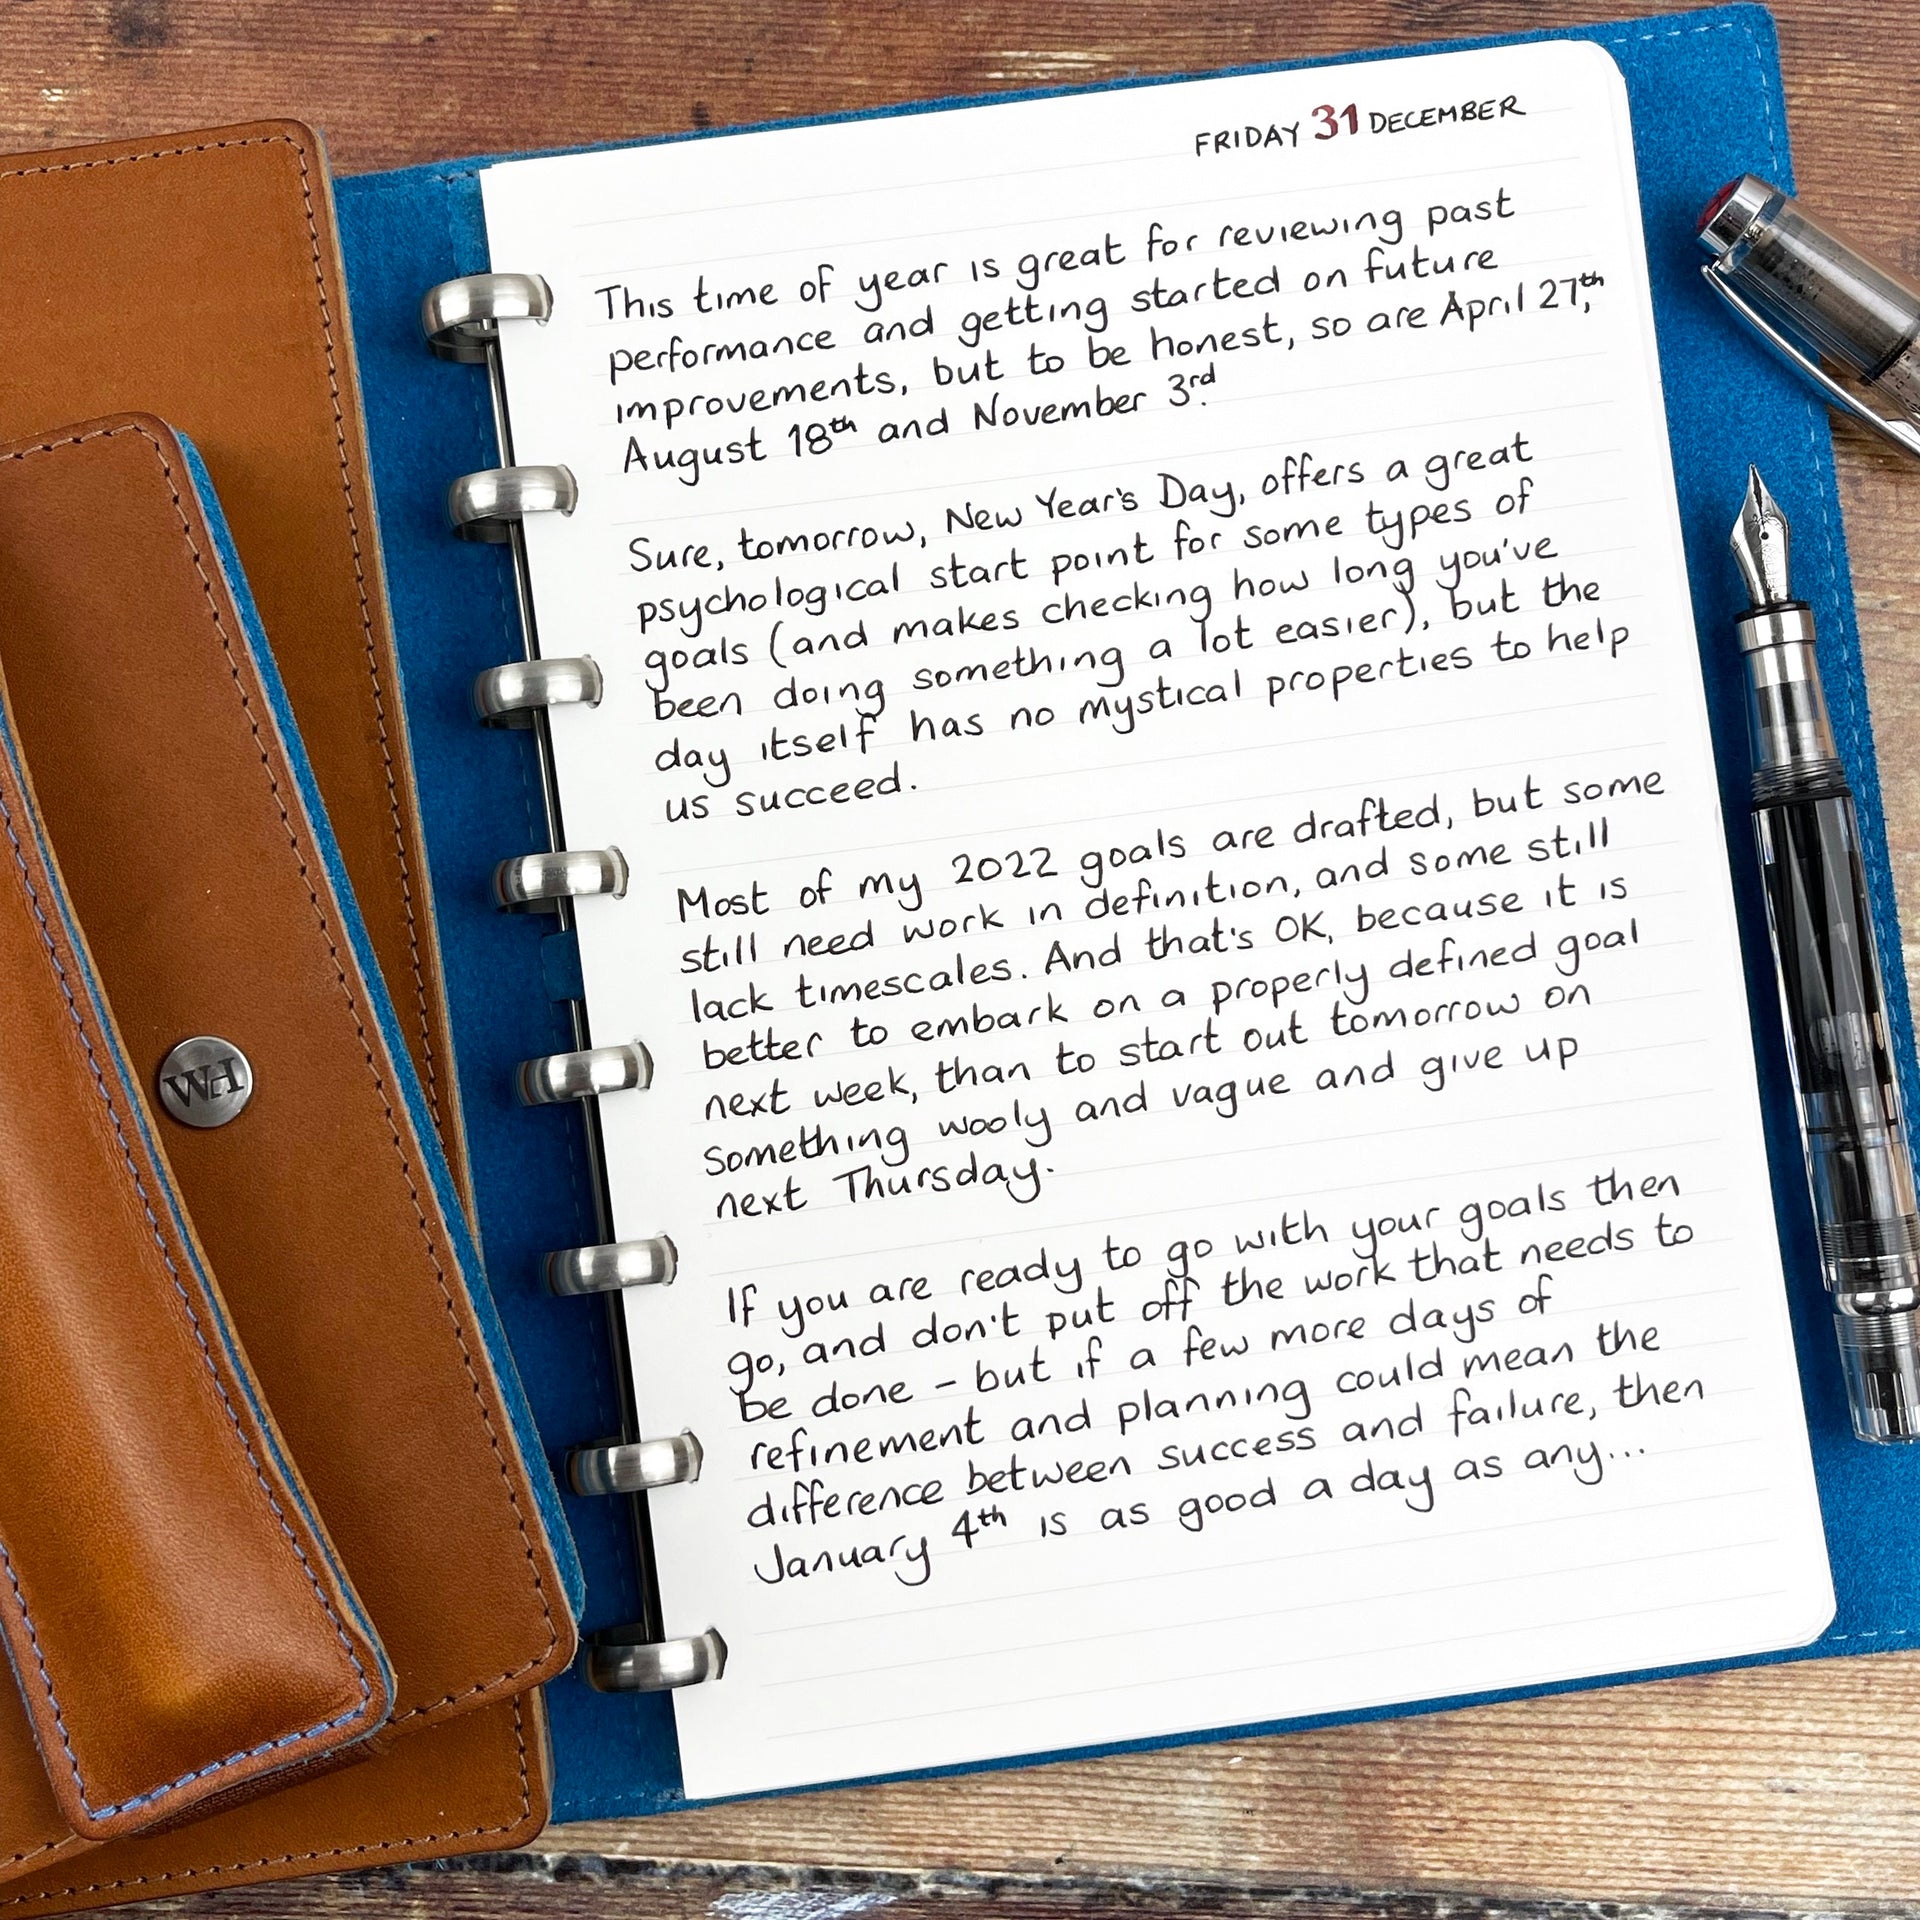 FRIDAY 31 DECEMBER
This time of year is great for reviewing past
performance and getting started on future
improvements, but to be honest, so are April 27th,
August 18th and November 3rd.
Sure, tomorrow, New Year's Day, offers a great
psychological start point for some types of
goals (and makes checking how long you've
been doing something a lot easier), but the
day itself has no mystical properties to help
us succeed.
Most of my 2022 goals are drafted, but some
still need work in definition, and some still
lack timescales. And that's OK, because it is
better to embark on a properly defined goal
next week, than to start out tomorrow on
something wooly and vague and give up
next Thursday.
If you are ready to go with your goals then
go, and don't put off the work that needs to
be done - but if a few more days of
refinement and planning could mean the
difference between success and failure, then
January 4th is as good a day as any...